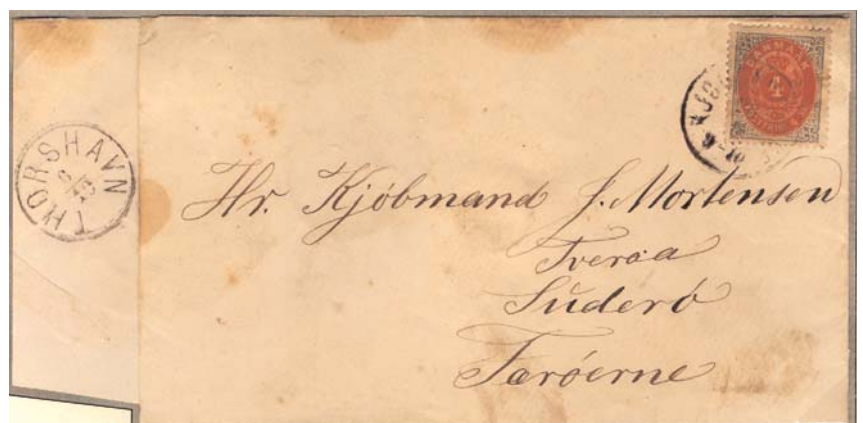 THORSHAVN
DANMARK
4
Hr. Kjöbmand J. Mortensen
Tveraa
Suderö
Færöerne